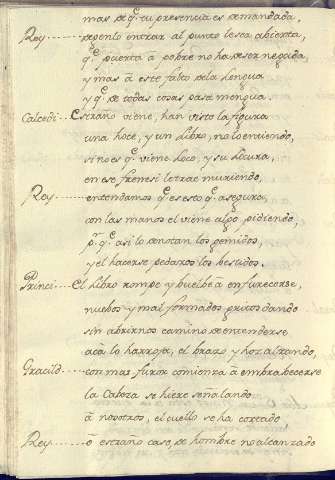 mas de q.^e tu presencia es demandada,
Rey------dexenlo entrar al punto le sea abierta,
q.^e puerta â pobre no ha de ser negada,
y mas â este falto de la lengua
y q.^e de todas cosas pasa mengua.
Calcedi--Estraño viene, han visto la figura
una hoce, y un Libro, no lo entiendo,
sino es q.^e viene loco, y su locura,
en ese frenesi le trae muriendo,
Rey------entendamos q.^e es esto q.^e asegura,
con las manos el viene algo pidiendo,
p.^r q.^e asi lo denotan los gemidos,
y el hacerse pedazos los bestidos.
Princi---El libro rompe y buelbe â enfurecerse,
nuebos y mal formados gritos dando
sin abrirnos camino de entenderse
acá lo harroja, el brazo y hoz alzando,
Gracild--con mas furor comienza â embrabecerse
la Cabeza se hiere señalando
â nosotros, el cuello se ha cortado
Rey------ô estraño caso, de hombre no alcanzado